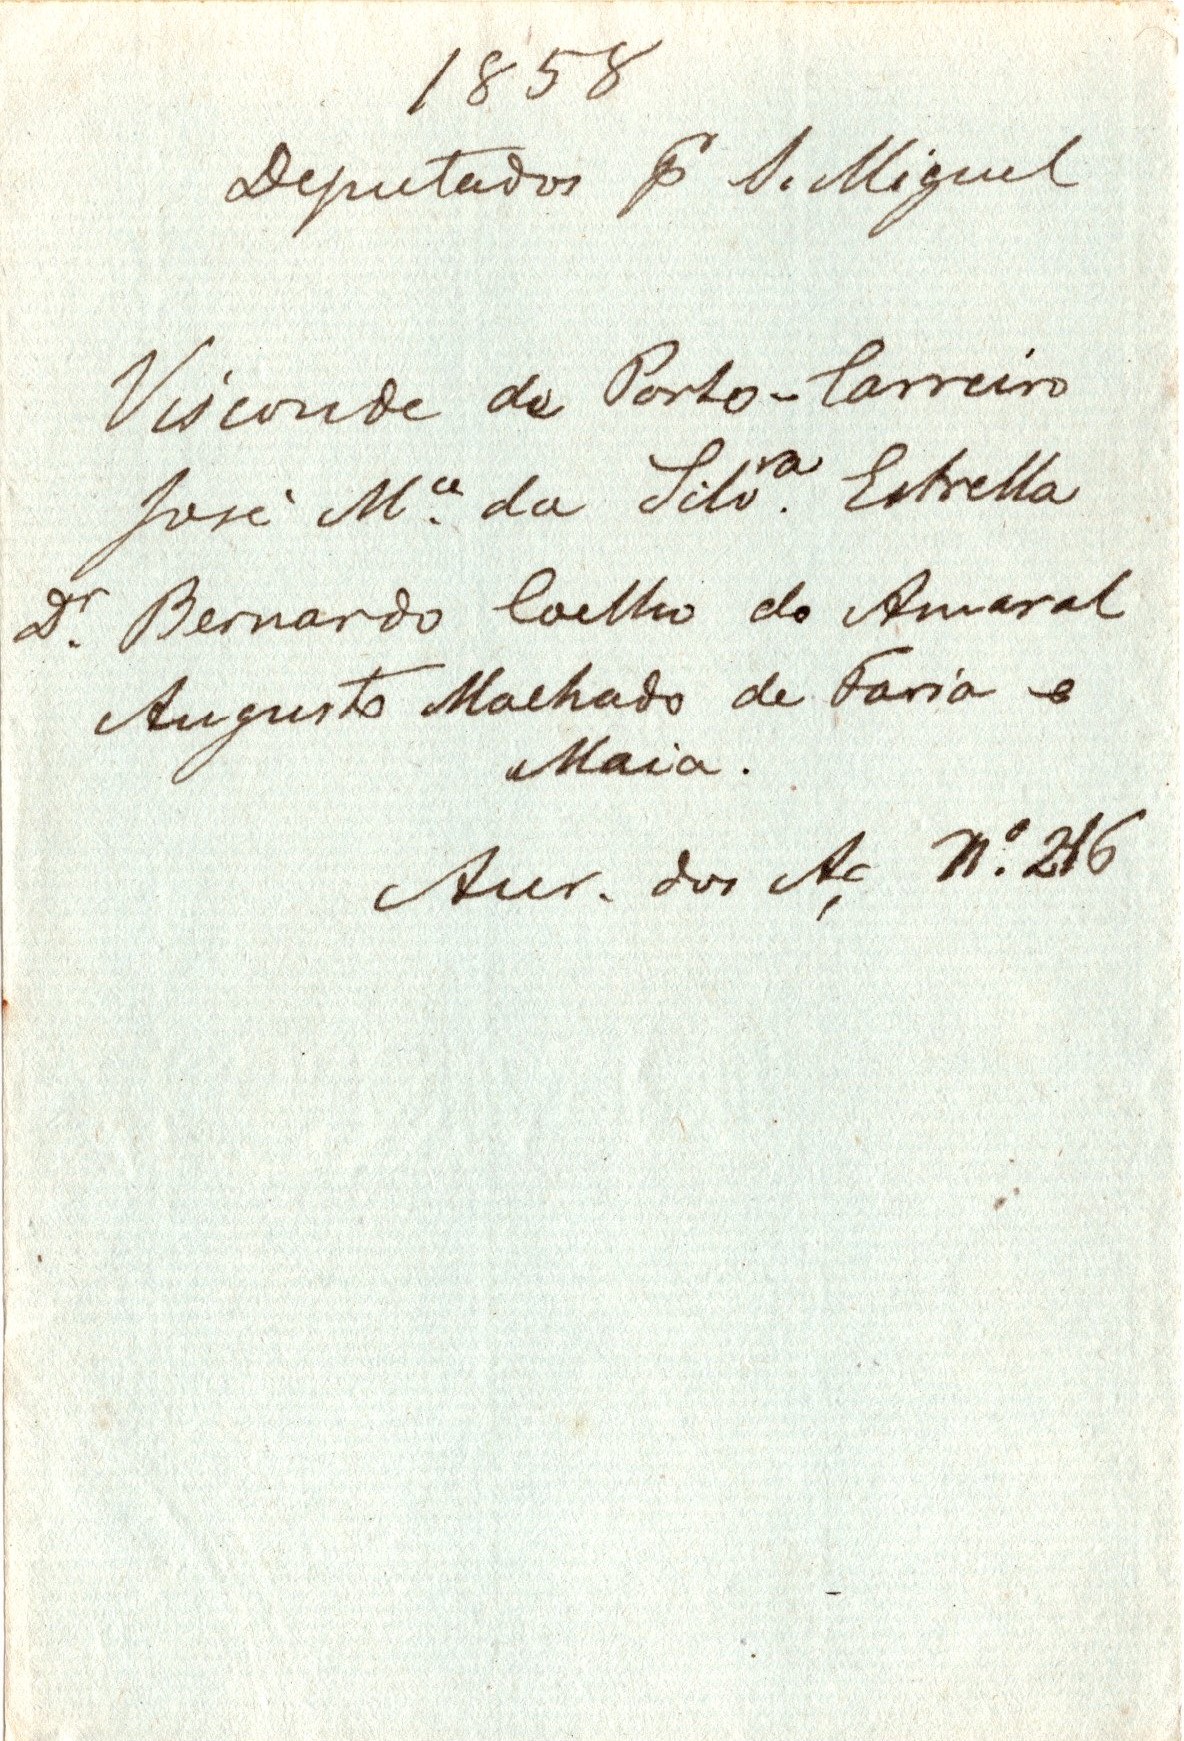 1858
Deputados pr S. Miguel
Visconde de Porto-Carreiro
José Mª. da Silvra. Estrella
Dr. Bernardo Coelho do Amaral
Augusto Machado de Faria e
Maia.
Aur. dos Aç Nº. 216